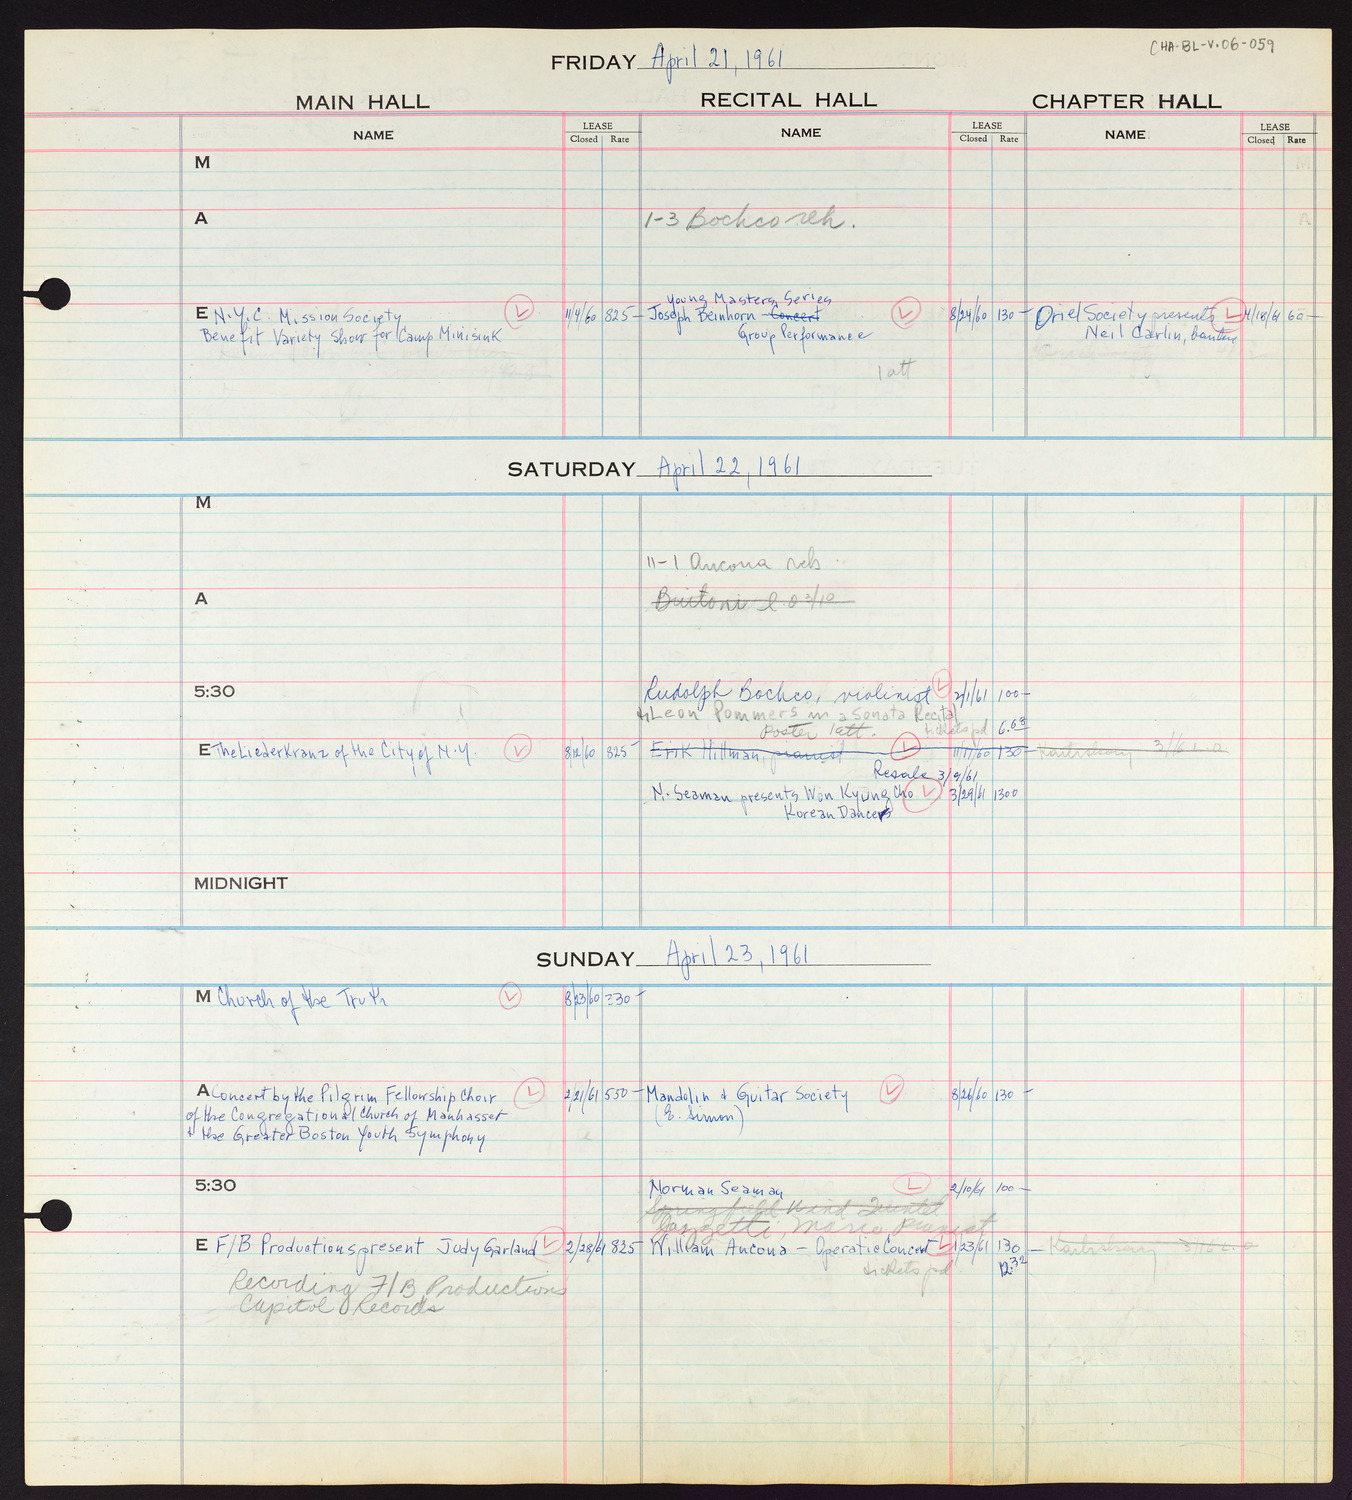 CHA-BL-V.06-059
FRIDAY April 21, 1961
MAIN HALL RECITAL HALL CHAPTER HALL
NAME LEASE Closed Rate NAME LEASE Closed Rate NAME LEASE Closed Rate
M
A 1-3 Bochco reh.
Young Masters Series
E N.Y.C. Mission Society 11/4/60 825— Joseph Beinhorn Concert 8/24/60 130— Oriel Society presents 4/18/61 60—
Benefit Variety Show for Camp Minisink Group Performance Neil Carlin,
1 att
SATURDAY April 22, 1961
M
11-1 Ancona reh
A Buitoni l.o 3/10
5:30 Rudolph Bochco, violinist 2/1/61 100—
& Leon Pommers in a Sonata Recital
Poster 1 att. tickets pd 6.68
E The LiederKranz of the City of N.Y. 8/12/60 825— Erik Hillman, pianist 11/17/60 130— 3/16 l.o
Resale 3/9/61
N. Seaman presents Won Kyung Cho 3/29/61 1300
Korean Dancer
MIDNIGHT
SUNDAY April 23, 1961
M Church of the Truth 8/23/60 330—
A Concert by the Pilgrim Fellowship Choir 2/21/61 550— Mandolin & Guitar Society 8/26/60 130—
of the Congregational Church of Manhasset (E. Simon)
& the Greater Boston Youth Symphony
5:30 Norman Seaman 2/10/61 100—
Springfield Wind Quintet
Mario Pianist
E F/B Productions present Judy Garland 2/28/61 825 William Ancona — Operatic Concert 1/23/61 130— 3/16 l.o
tickets pd 12.32
Recording F/B Productions
Capitol Records